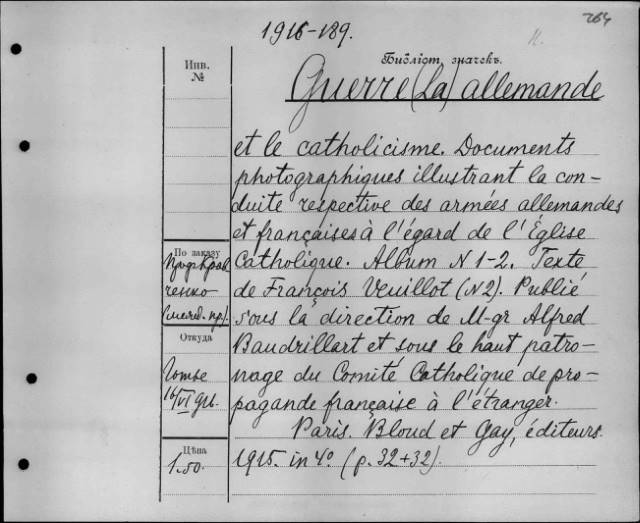 264
1916-189.
Библіот. значекъ.
Инв.
№
Guerre (La) allemande
et le catholicisme. Documents
photographiques illustrant la con-
duite respective des armées allemandes
et françaises à l'égard de l'Église
Catholique. Album N 1-2. Texte
de François Veuillot (N2). Publié
sous la direction de M-gr Alfred
Baudrillart et sous le haut patro-
nage du Comité Catholique de pro-
pagande française à l'étranger.
Paris. Bloud et Gay, éditeurs.
1915. in 4° (p. 32+32).
По заказу
Проф Крав
ченко
Откуда
Готье
16/VI 916.
Цѣна
1.50.